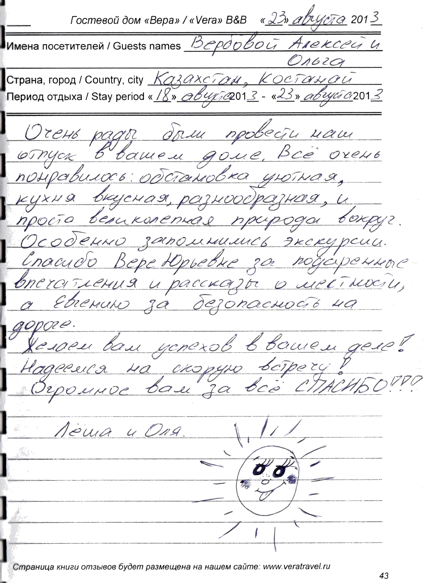 Гостевой дом «Вера» / «Vera» B&B « 23 » августа 2013
Имена посетителей / Guests names Вербовой Алексей и
Ольга
Страна, город / Country, city Казахстан, Костанай
Период отдыха / Stay period « 18 » августа 2013 - « 23 » августа 2013
Очень рады были провести наш
отпуск в вашем доме. Всё очень
понравилось: обстановка уютная,
кухня вкусная, разнообразная, и
проста великолепная природа вокруг.
Особенно запомнились экскурсии.
Спасибо Вере Юрьевне за подаренные
впечатления и рассказы о местности,
а Евгению за безопасность на
дороге.
Желаем вам успехов в вашем деле!
Надеемся на скорую встречу!
Огромное вам за всё СПАСИБО!!!
Лёша и Оля.
Страница книги отзывов будет размещена на нашем сайте: www.veratravel.ru
43